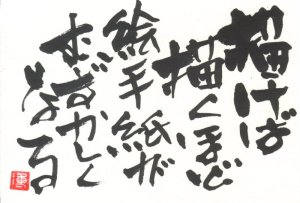 描けば
描くほど
絵手紙が
むずかしく
なる